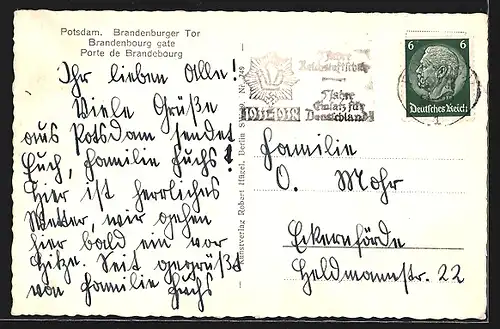 Potsdam. Brandenburger Tor
Brandenbourg gate
Porte de Brandebourg
Ihr lieben Alle!
Viele Grüße
aus Potsdam sendet
Euch, Familie Fuchs!
Hier ist herrliches
Wetter, wir gehen
hier bald ein vor
Hitze. Seit gegrüßt
von Familie Fuchs
Kunstverlag Robert Berlin
7 Jahre
Reichsluftschutz
1933-1938
5 Jahre
Einsatz für
Deutschland!
6 6
Deutsches Reich
Familie
O. Mohr
Eckernförde
Feldmannstr. 22